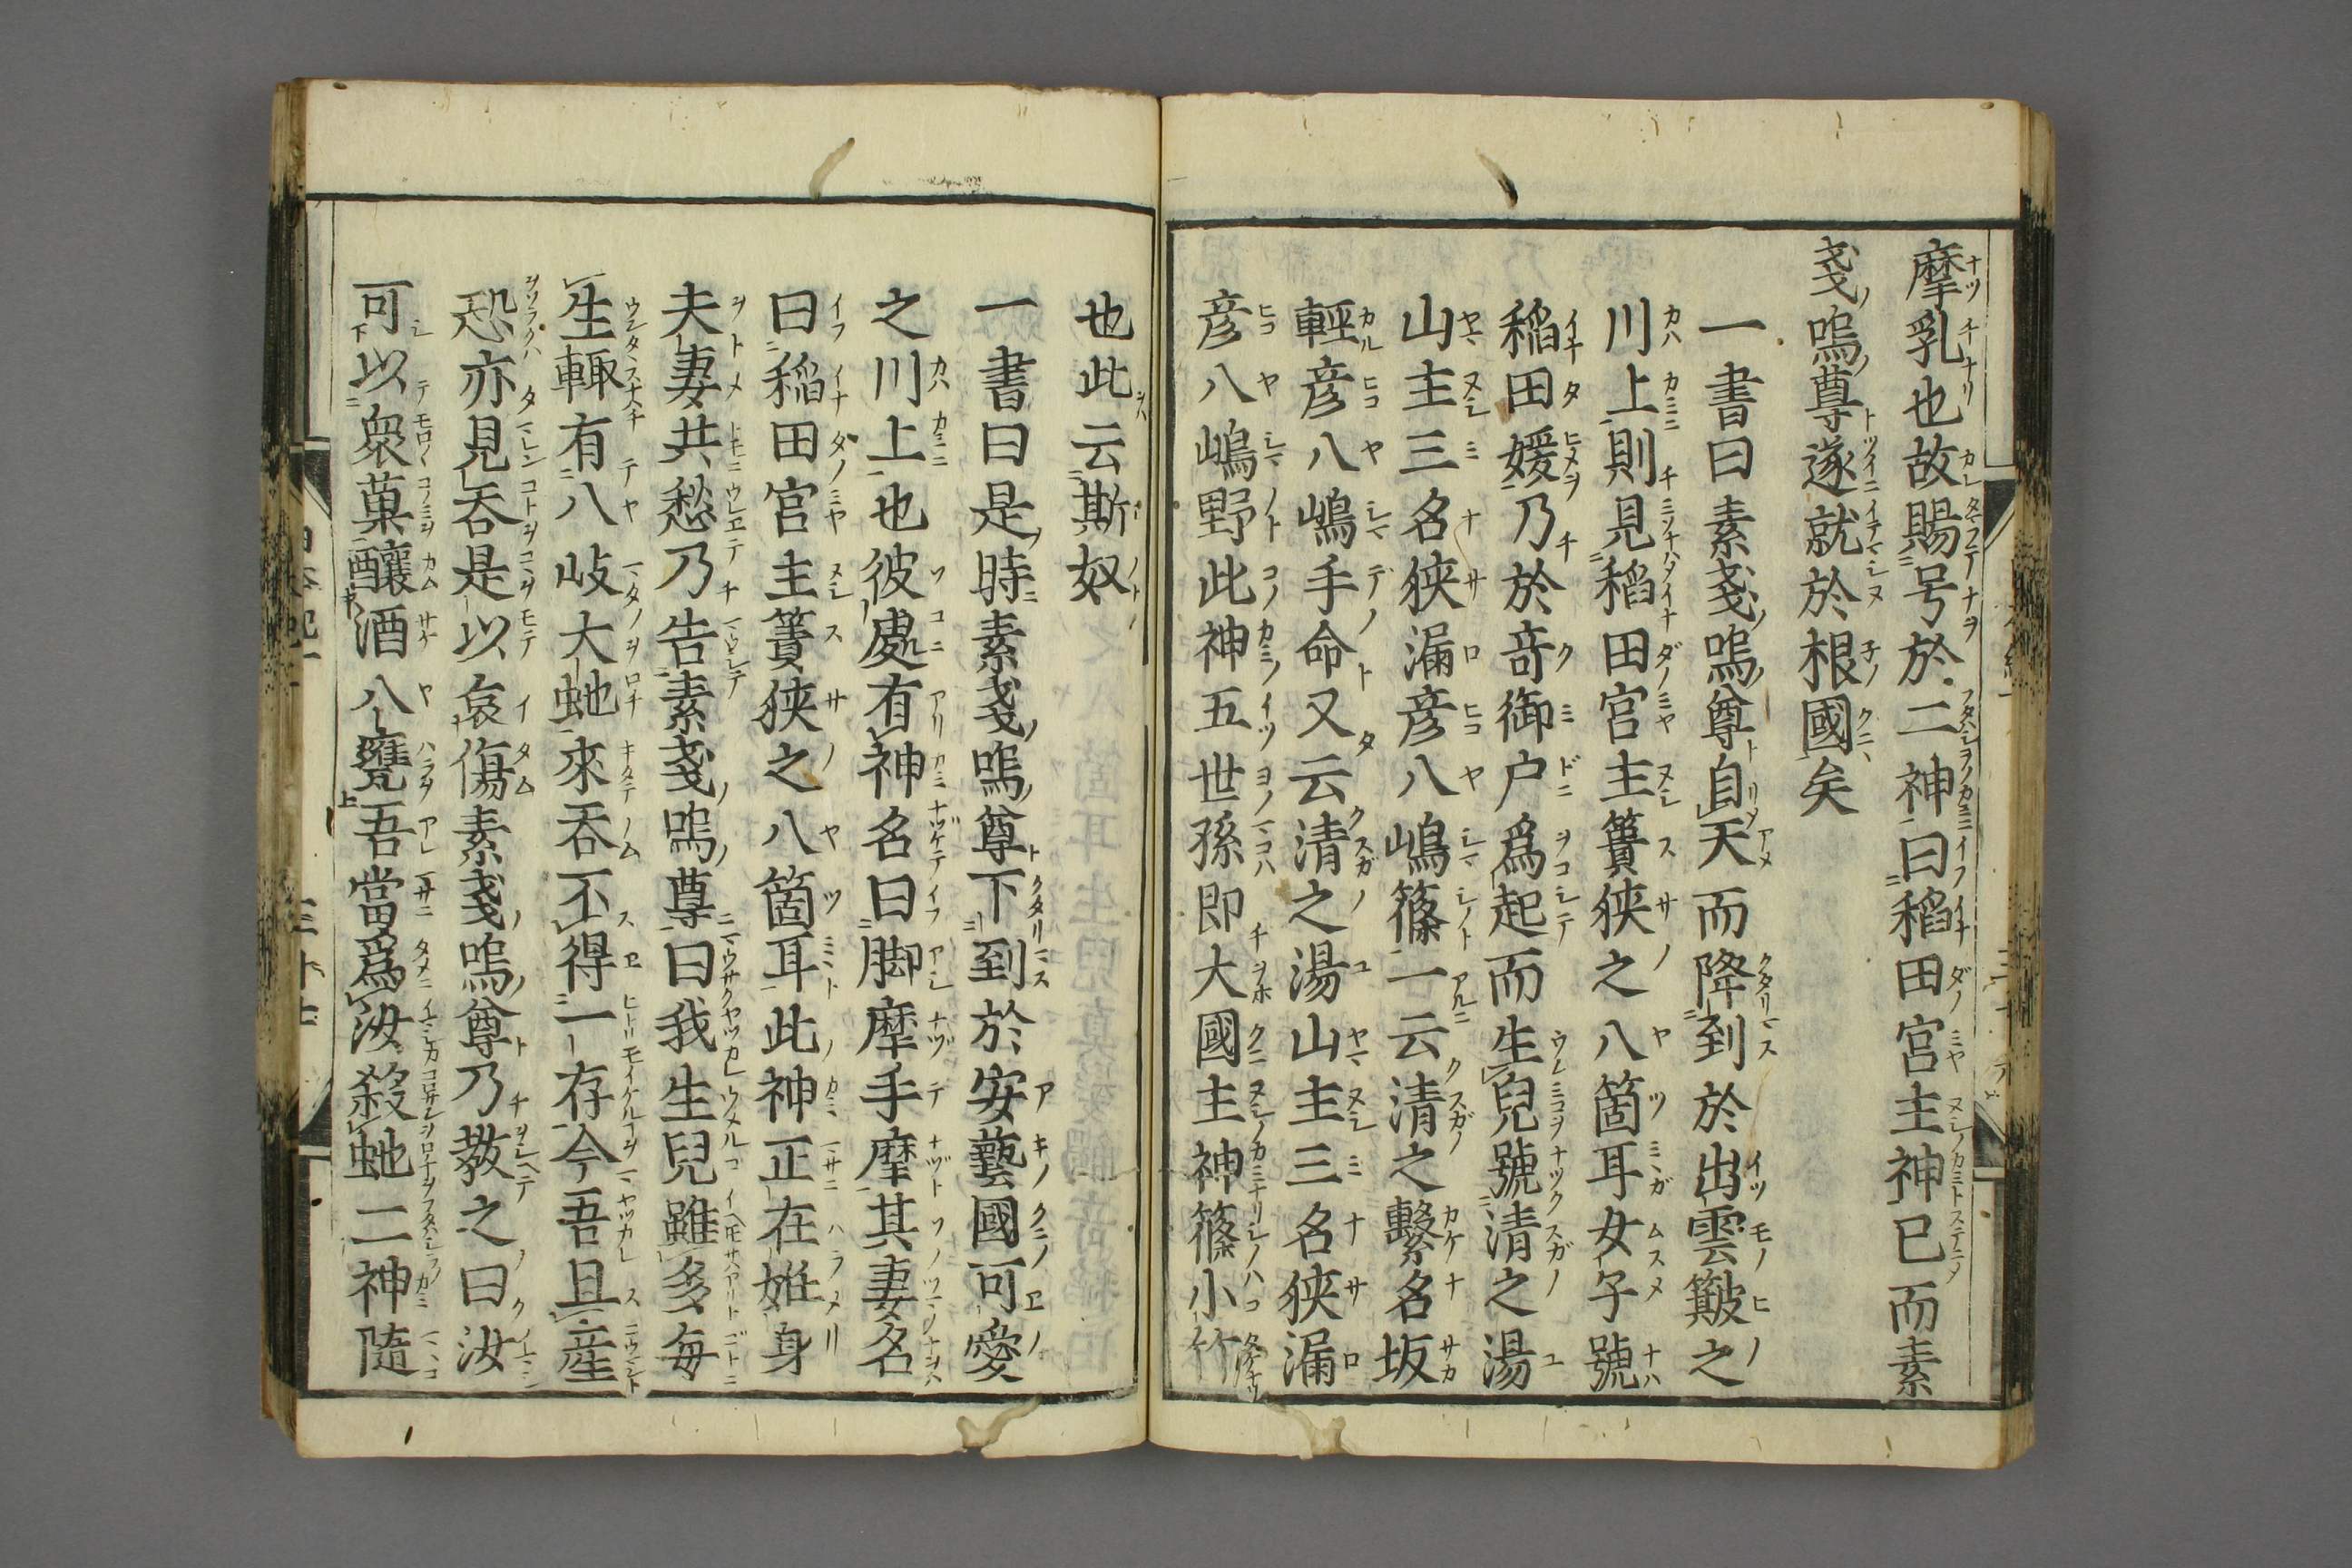 摩乳也故賜号於二神曰稻田宮主神已而素
戔嗚尊遂就於根國矣
一書曰素戔嗚尊自天而降到於出雲簸之
川上則見稻田宮主簀狹之八箇耳女子號
稻田媛乃於竒御户爲起而生兒號清之湯
山主三名狹漏彦八嶋篠一云清之繋名坂
輕彦八嶋手命又云清之湯山主三名狹漏
彦八嶋野此神五世孫即大國主神篠小竹
也此云斯奴
一書曰是時素戔嗚尊下到於安藝國可愛
之川上也彼處有神名曰脚摩手摩其妻名
曰稻田宮主簀狹之八箇耳此神正在姙身
夫妻共愁乃告素戔嗚尊曰我生兒雖多每
生輙有八岐大虵來吞不得一存今吾且產
恐亦見吞是以哀傷素戔嗚尊乃敎之曰汝
可以衆菓釀酒八甕吾當爲汝殺虵二神隨